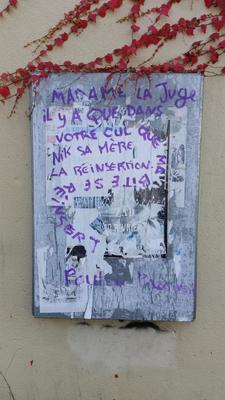 MADAME LA JUGE
il Y A QUE DANS
VOTRE CUL QUE MA
NIK SA MÈRE
LA RÉINSERTION.
BITE SE
RÉINSERT